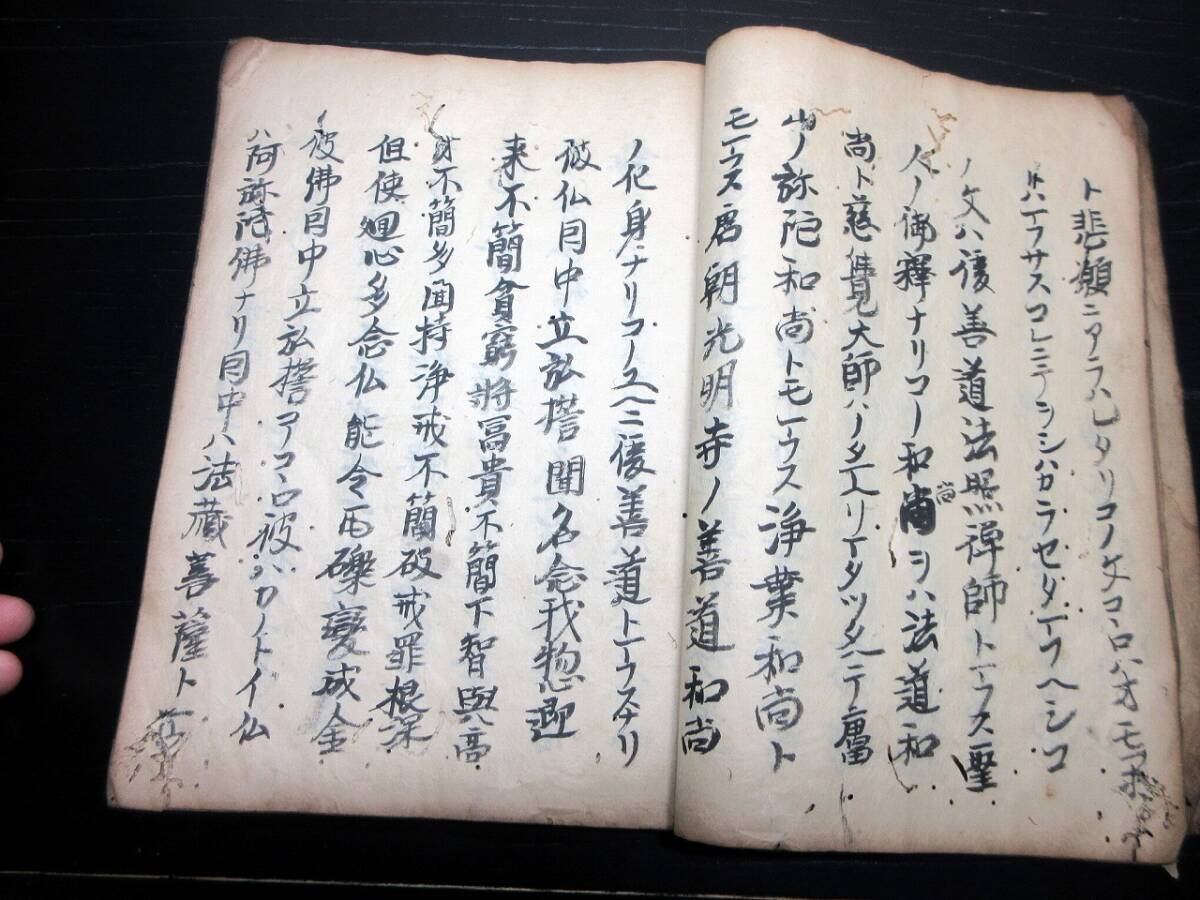 ト悲願ニアラハレタリコノ文コヽロハオモフホ
トハマフサスコレニテヲシハカラセタマフヘシコ
ノ文ハ後善道法照禅師トマフス聖
人ノ御釋ナリコノ和尚ヲハ法道和
尚
尚ト慈覺大師ハノタマヘリマタツタヘニテ廬
山ノ弥陀和尚トモマウス浄業和尚ト
モマウス唐朝光明寺ノ善道和尚
ノ化身ナリコノユヘニ後善道トマウスナリ
彼仏因中立弘誓聞名念我惣迎
来不簡貧窮將冨貴不簡下智與高
才不簡多聞持浄戒不簡破戒罪根深
但使廻心多念仏能令瓦礫變成金
彼佛因中立弘誓コノコヽロ彼ハカノトイ仏
ハ阿弥陀佛ナリ因中ハ法藏菩薩ト